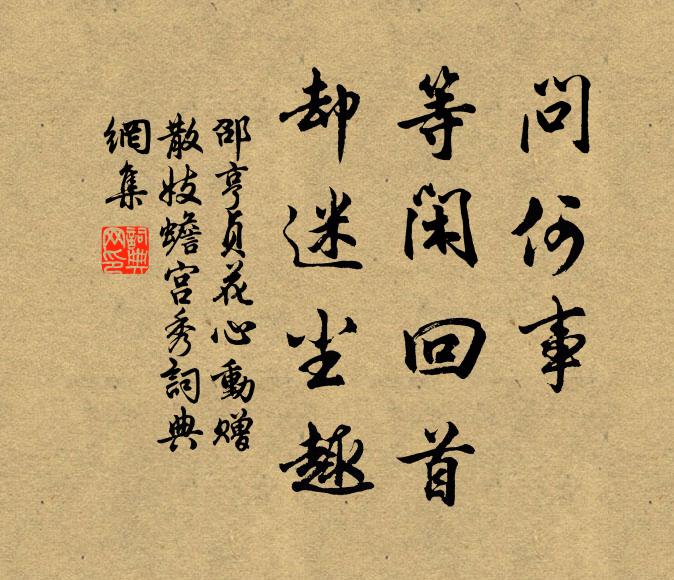 问何事
等闲回首
却迷尘趣
邵亨贞花心动赠
散妓蟾宫秀词典
網集
詞典
网印